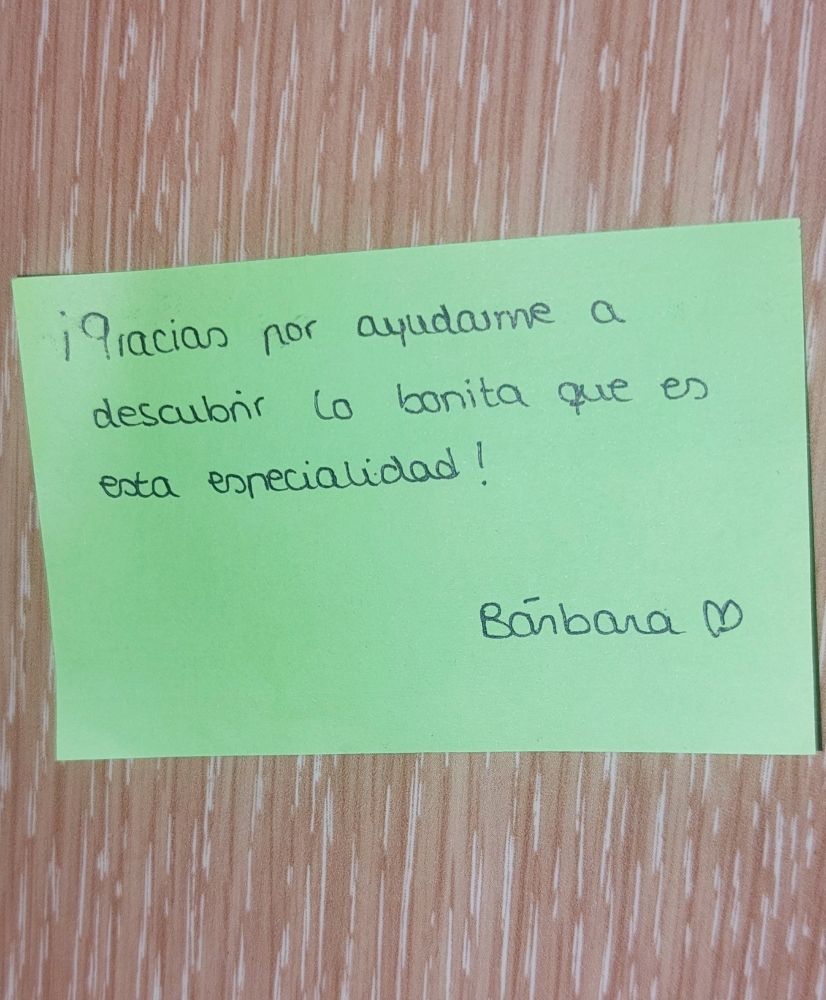 ¡Gracias por ayudarme a
descubrir lo bonita que es
esta especialidad!
Bárbara ♡